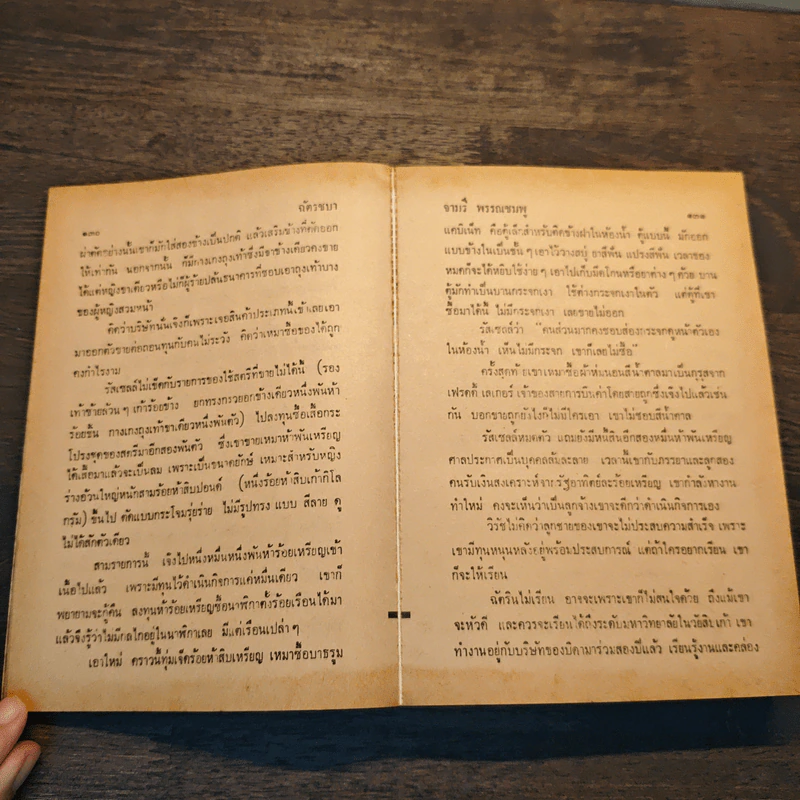 ๑๓๐ ฉัตรชบา
ผ่าตัดอย่างนั้นเขาก็มักใส่สองข้างเป็นปกติ แล้วเสริมข้างที่ตัดออก
ให้เท่ากัน นอกจากนั้น ก็มีกางเกงถุงเท้าซึ่งมีขาข้างเดียวคงขาย
ได้แต่หญิงขาเดียวหรือไม่ก็ผู้ร้ายปล้นธนาคารที่ชอบเอาถุงเท้าบาง
ของผู้หญิงสวมหน้า
คิดว่าบริษัทนั้นเจ๊งก็เพราะเจอสินค้าประเภทนี้เข้าเลยเอา
มาออกตัวขายต่อถอนทุนกับคนไม่ระวัง คิดว่าเหมาซื้อของได้ถูก
คงกำไรงาม
รัสเซลล์ไม่เข็ดกับรายการของใช้สตรีที่ขายไม่ได้นี้ (รอง
เท้าซ้ายล้วน ๆ เก้าร้อยข้าง ยกทรงกะวอกข้างเดียวหนึ่งพันห้า
ร้อยชิ้น กางเกงถุงเท้าขาเดียวหนึ่งพันตัว) ไปลงทุนซื้อเสื้อกระ
โปรงชุดของสตรีมาอีกสองพันตัว ซึ่งเขาขายเหมาห้าพันเหรียญ
ได้เสื้อมาแล้วจะเป็นลม เพราะเป็นขนาดยักษ์ เหมาะสำหรับหญิง
ร่างอ้วนใหญ่หนักสามร้อยห้าสิบปอนด์ (หนึ่งร้อยห้าสิบเก้ากิโล
กรัม) ขึ้นไป ตัดแบบกระโจมรุ่ยร่าย ไม่มีรูปทรง แบบ สีลาย ดู
ไม่ได้สักตัวเดียว
สามรายการนี้ เจ๊งไปหนึ่งหมื่นหนึ่งพันห้าร้อยเหรียญเข้า
เนื้อไปแล้ว เพราะมีทุนไว้ดำเนินกิจการแค่หมื่นเดียว เขาก็
พยายามจะกู้คืน ลงทุนห้าร้อยเหรียญซื้อนาฬิกาตั้งร้อยเรือนได้มา
แล้วจึงรู้ว่าไม่มีกลไกอยู่ในนาฬิกาเลย มีแต่เรือนเปล่า ๆ
เอาใหม่ คราวนี้ทุ่มเจ็ดร้อยห้าสิบเหรียญ เหมาซื้อบาธรูม
จามรี พรรณชมพู ๑๓๑
แคบิเน็ท คือตู้เล็กสำหรับติดข้างฝาในห้องน้ำ ตู้แบบนี้ มักออก
แบบข้างในเป็นชั้น ๆ เอาไว้วางสบู่ ยาสีฟัน แปรงสีฟัน เวลาของ
หมดก็จะได้หยิบใช้ง่าย ๆ เอาไปเก็บมีดโกนหรือยาต่าง ๆ ด้วย บาน
ตู้มักทำเป็นบานกระจกเงา ใช้ต่างกระจกเงาในตัว แต่ตู้ที่เขา
ซื้อมาได้นี้ ไม่มีกระจกเงา เลยขายไม่ออก
รัสเซลล์ว่า "คนส่วนมากคงชอบส่องกระจกดูหน้าตัวเอง
ในห้องน้ำ เห็นไม่มีกระจก เขาก็เลยไม่ซื้อ"
ครั้งสุดท้ายเขาเหมาซื้อผ้าห่มนอนสีน้ำตาลมาเป็นกุรุสจาก
เฟรดดี้ เลเกอร์ เจ้าของสายการบินค่าโดยสายถูกซึ่งเจ๊งไปแล้วเช่น
กัน บอกขายถูกยังไงก็ไม่มีใครเอา เขาไม่ชอบสีน้ำตาล
รัสเซลล์หมดตัว แถมยังมีหนี้สินอีกสองหมื่นห้าพันเหรียญ
ศาลประกาศเป็นบุคคลล้มละลาย เวลานี้เขากับภรรยาและลูกสอง
คนรับเงินสงเคราะห์จากรัฐอาทิตย์ละร้อยเหรียญ เขากำลังหางาน
ทำใหม่ คงจะเห็นว่าเป็นลูกจ้างเขาจะดีกว่าดำเนินกิจการเอง
วิรัชไม่คิดว่าลูกชายของเขาจะไม่ประสบความสำเร็จ เพราะ
เขามีทุนหนุนหลังอยู่พร้อมประสบการณ์ แต่ถ้าใครอยากเรียน เขา
ก็จะให้เรียน
ฉัตรินไม่เรียน อาจจะเพราะเขาก็ไม่สนใจด้วย ถึงแม้เขา
จะหัวดี และควรจะเรียนได้ถึงระดับมหาวิทยาลัยในวัยสิบเก้า เขา
ทำงานอยู่กับบริษัทของบิดามาร่วมสองปีแล้ว เรียนรู้งานและคล่อง